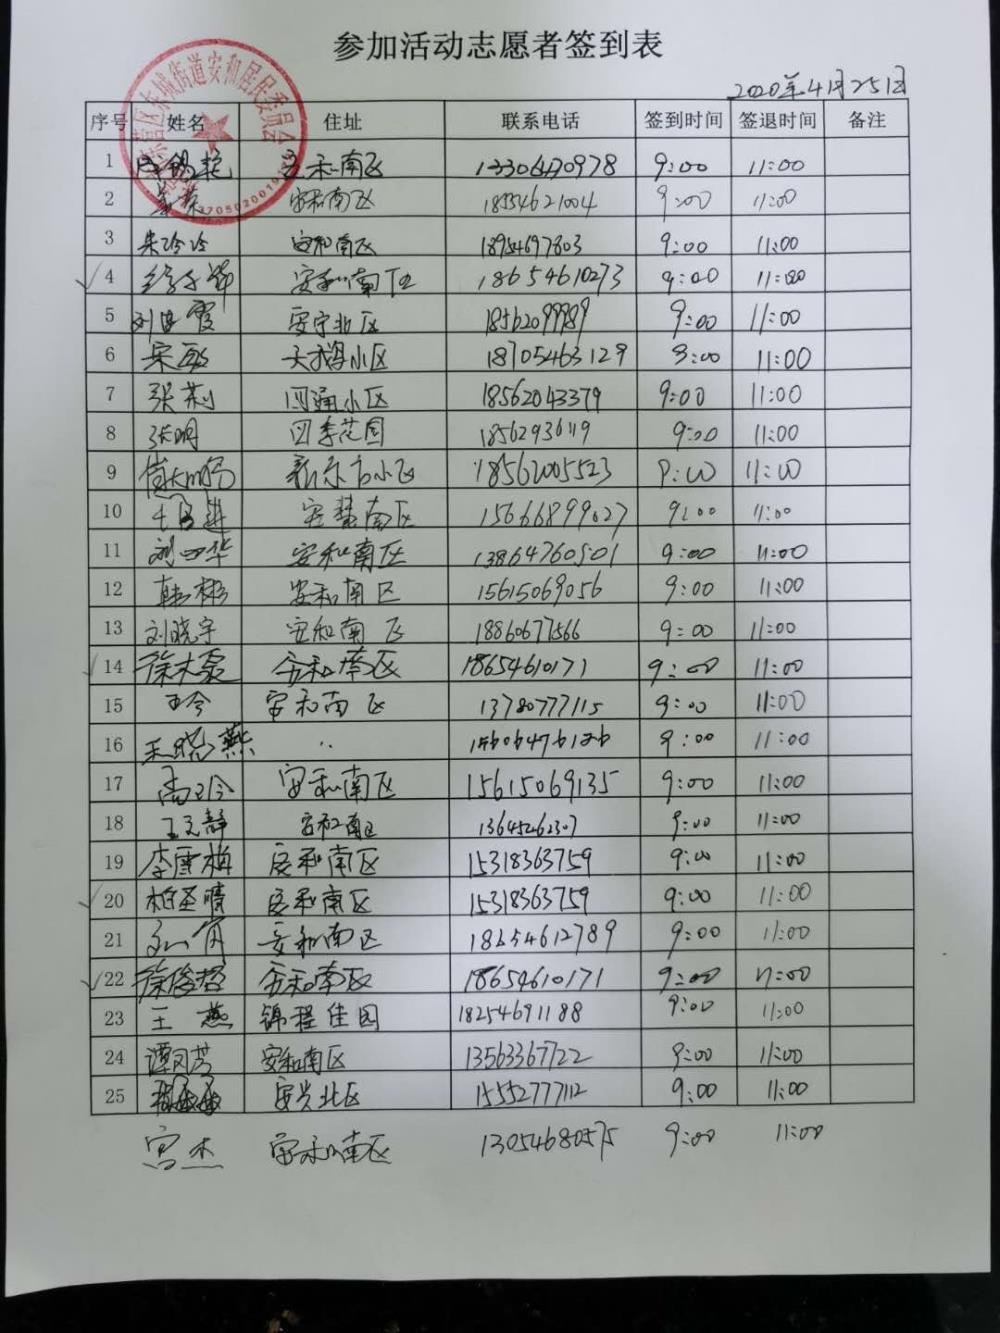 参加活动志愿者签到表
2020年4月25日
东城街道安和居民委员会
序号 姓名 住址 联系电话 签到时间 签退时间 备注
1 安和南区 13306470978 9:00 11:00
2 安和南区 18554621004 9:00 11:00
3 朱玲玲 安和南区 18954697803 9:00 11:00
4 安和南区 18654610273 9:00 11:00
5 安宁北区 9:00 11:00
6 宋 天鹅小区 18705463129 9:00 11:00
7 张莉 四通小区 18562043379 9:00 11:00
8 张明 四季花园 9:00 11:00
9 小区 18562005523 9:00 11:00
10 安慧南区 15666899027 9:00 11:00
11 刘四华 安和南区 13864760501 9:00 11:00
12 韩彬 安和南区 15615069056 9:00 11:00
13 刘晓宇 安和南区 18860677566 9:00 11:00
14 徐 安和南区 18654610171 9:00 11:00
15 王令 安和南区 13780777115 9:00 11:00
16 王晓燕 〃 15606476126 9:00 11:00
17 高玉玲 安和南区 15615069135 9:00 11:00
18 王 静 安和南区 13645262307 9:00 11:00
19 李雪梅 安和南区 15318363759 9:00 11:00
20 柏圣晴 安和南区 15318363759 9:00 11:00
21 安和南区 18654612789 9:00 11:00
22 徐俊哲 安和南区 18654610171 9:00 11:00
23 王燕 锦程佳园 18254691188 9:00 11:00
24 谭月芳 安和南区 13563367722 9:00 11:00
25 安兴北区 15552777112 9:00 11:00
宫杰 安和南区 13054680575 9:00 11:00